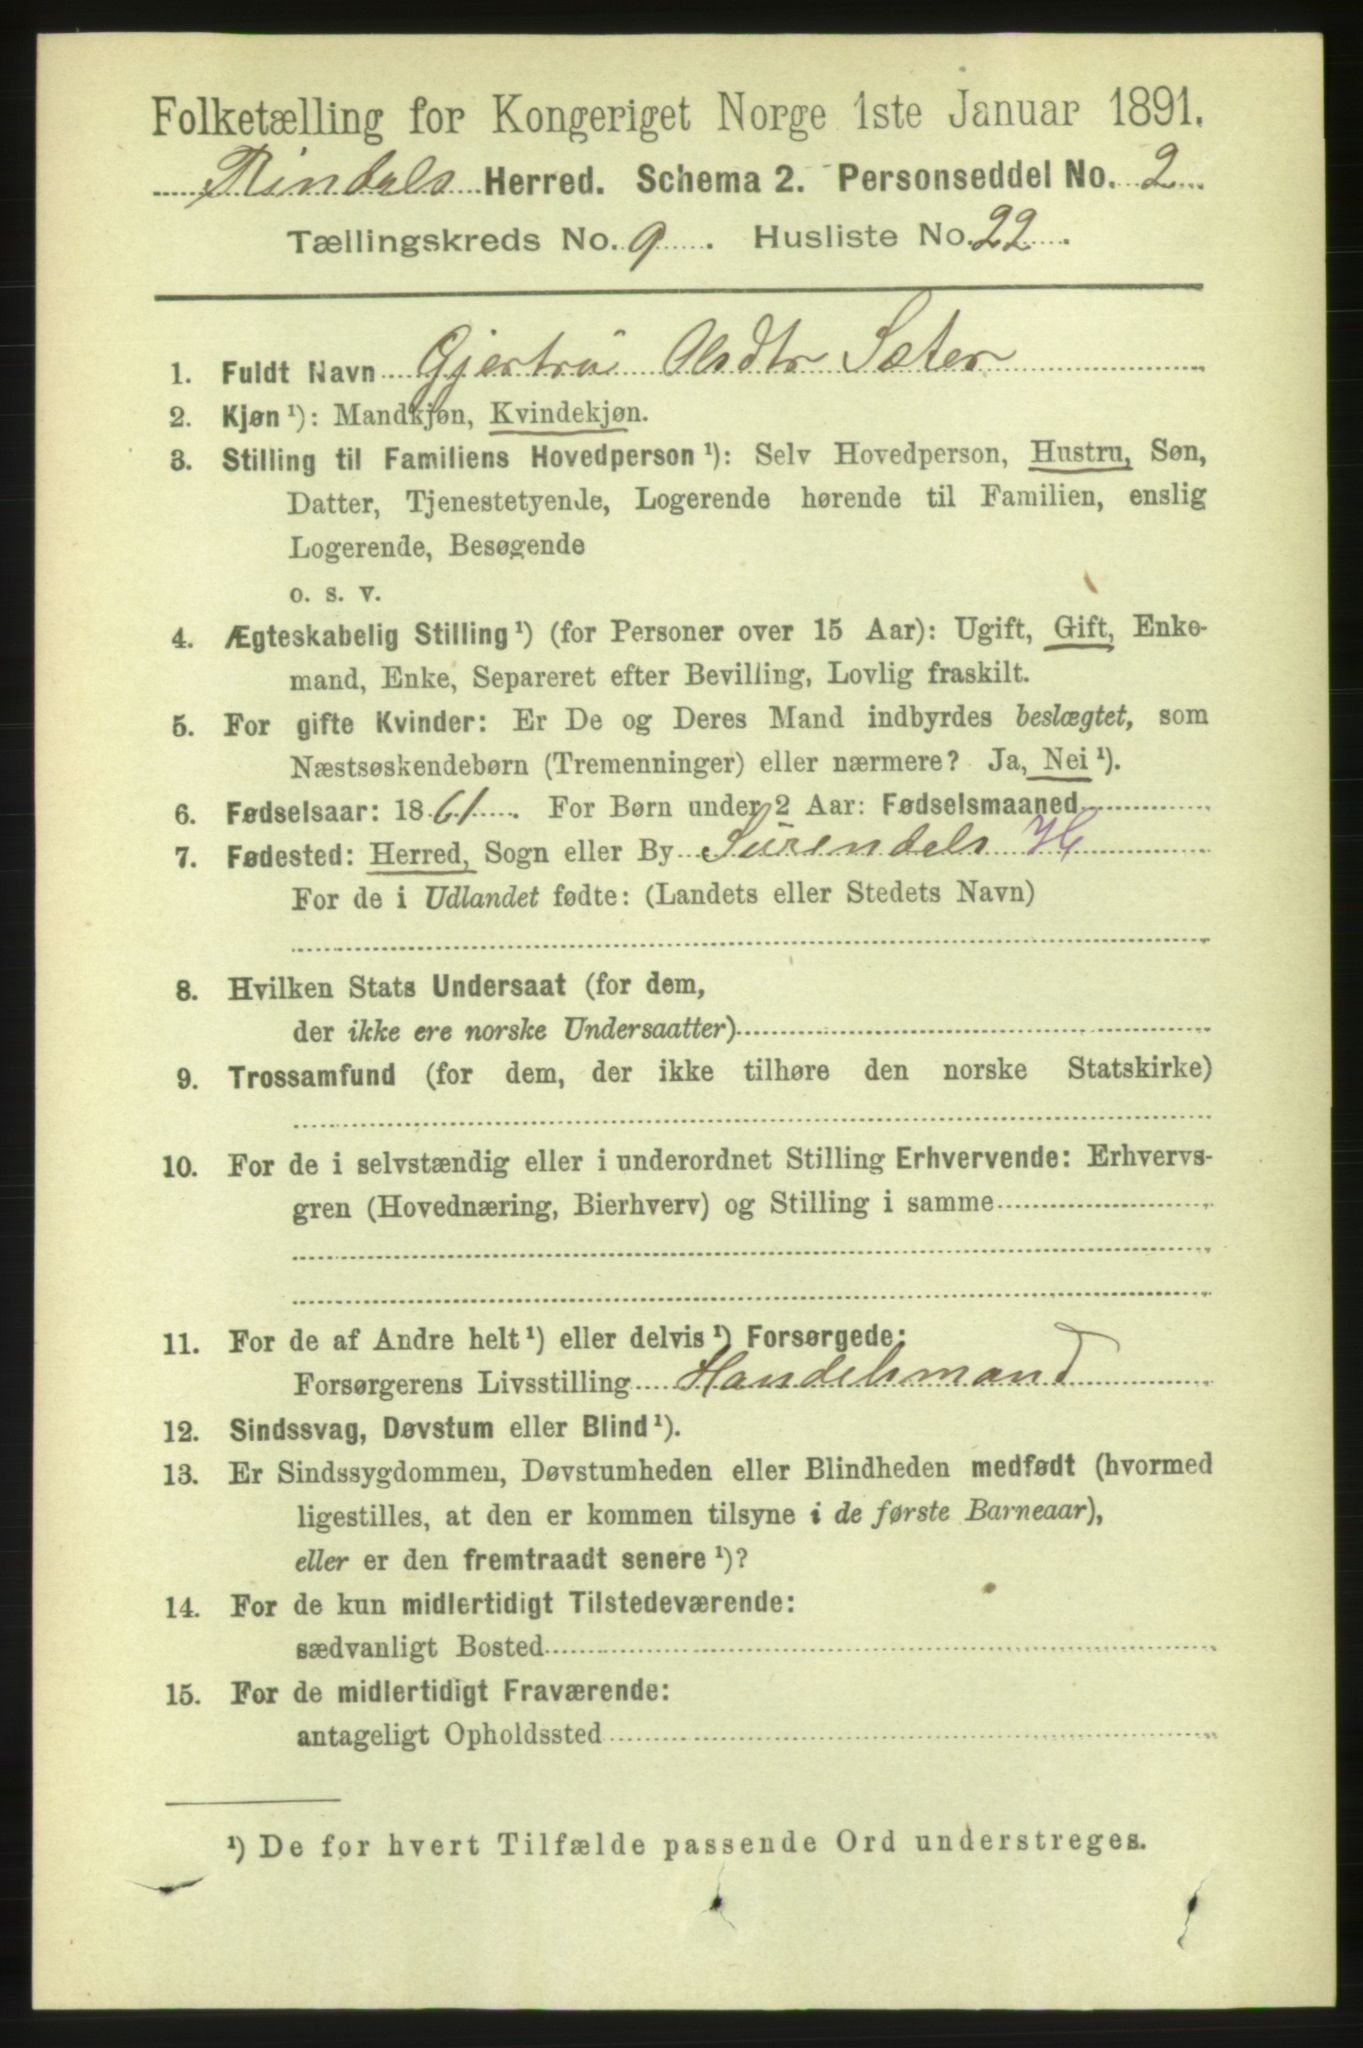 Folketælling for Kongeriget Norge 1ste Januar 1891.
Rindals Herred. Schema 2. Personseddel No. 2
Tællingskreds No. 9. Husliste No. 22.
1. Fuldt Navn Gjertrü Olsdtr Sæter
2. Kjøn ¹): Mandkjøn, Kvindekjøn.
3. Stilling til Familiens Hovedperson ¹): Selv Hovedperson, Hustru, Søn,
Datter, Tjenestetyende, Logerende hørende til Familien, enslig
Logerende, Besøgende
o. s. v.
4. Ægteskabelig Stilling ¹) (for Personer over 15 Aar): Ugift, Gift, Enke-
mand, Enke, Separeret efter Bevilling, Lovlig fraskilt.
5. For gifte Kvinder: Er De og Deres Mand indbyrdes beslægtet, som
Næstsøskendebørn (Tremenninger) eller nærmere? Ja, Nei ¹).
6. Fødselsaar: 1861. For Børn under 2 Aar: Fødselsmaaned
7. Fødested: Herred, Sogn eller By Surendals H
For de i Udlandet fødte: (Landets eller Stedets Navn)
8. Hvilken Stats Undersaat (for dem,
der ikke ere norske Undersaatter)
9. Trossamfund (for dem, der ikke tilhøre den norske Statskirke)
10. For de i selvstændig eller i underordnet Stilling Erhvervende: Erhvervs-
gren (Hovednæring, Bierhverv) og Stilling i samme
11. For de af Andre helt ¹) eller delvis ¹) Forsørgede:
Forsørgerens Livsstilling Handelsmand
12. Sindssvag, Døvstum eller Blind ¹).
13. Er Sindssygdommen, Døvstumheden eller Blindheden medfødt (hvormed
ligestilles, at den er kommen tilsyne i de første Barneaar),
eller er den fremtraadt senere ¹)?
14. For de kun midlertidigt Tilstedeværende:
sædvanligt Bosted
15. For de midlertidigt Fraværende:
antageligt Opholdssted
¹) De for hvert Tilfælde passende Ord understreges.